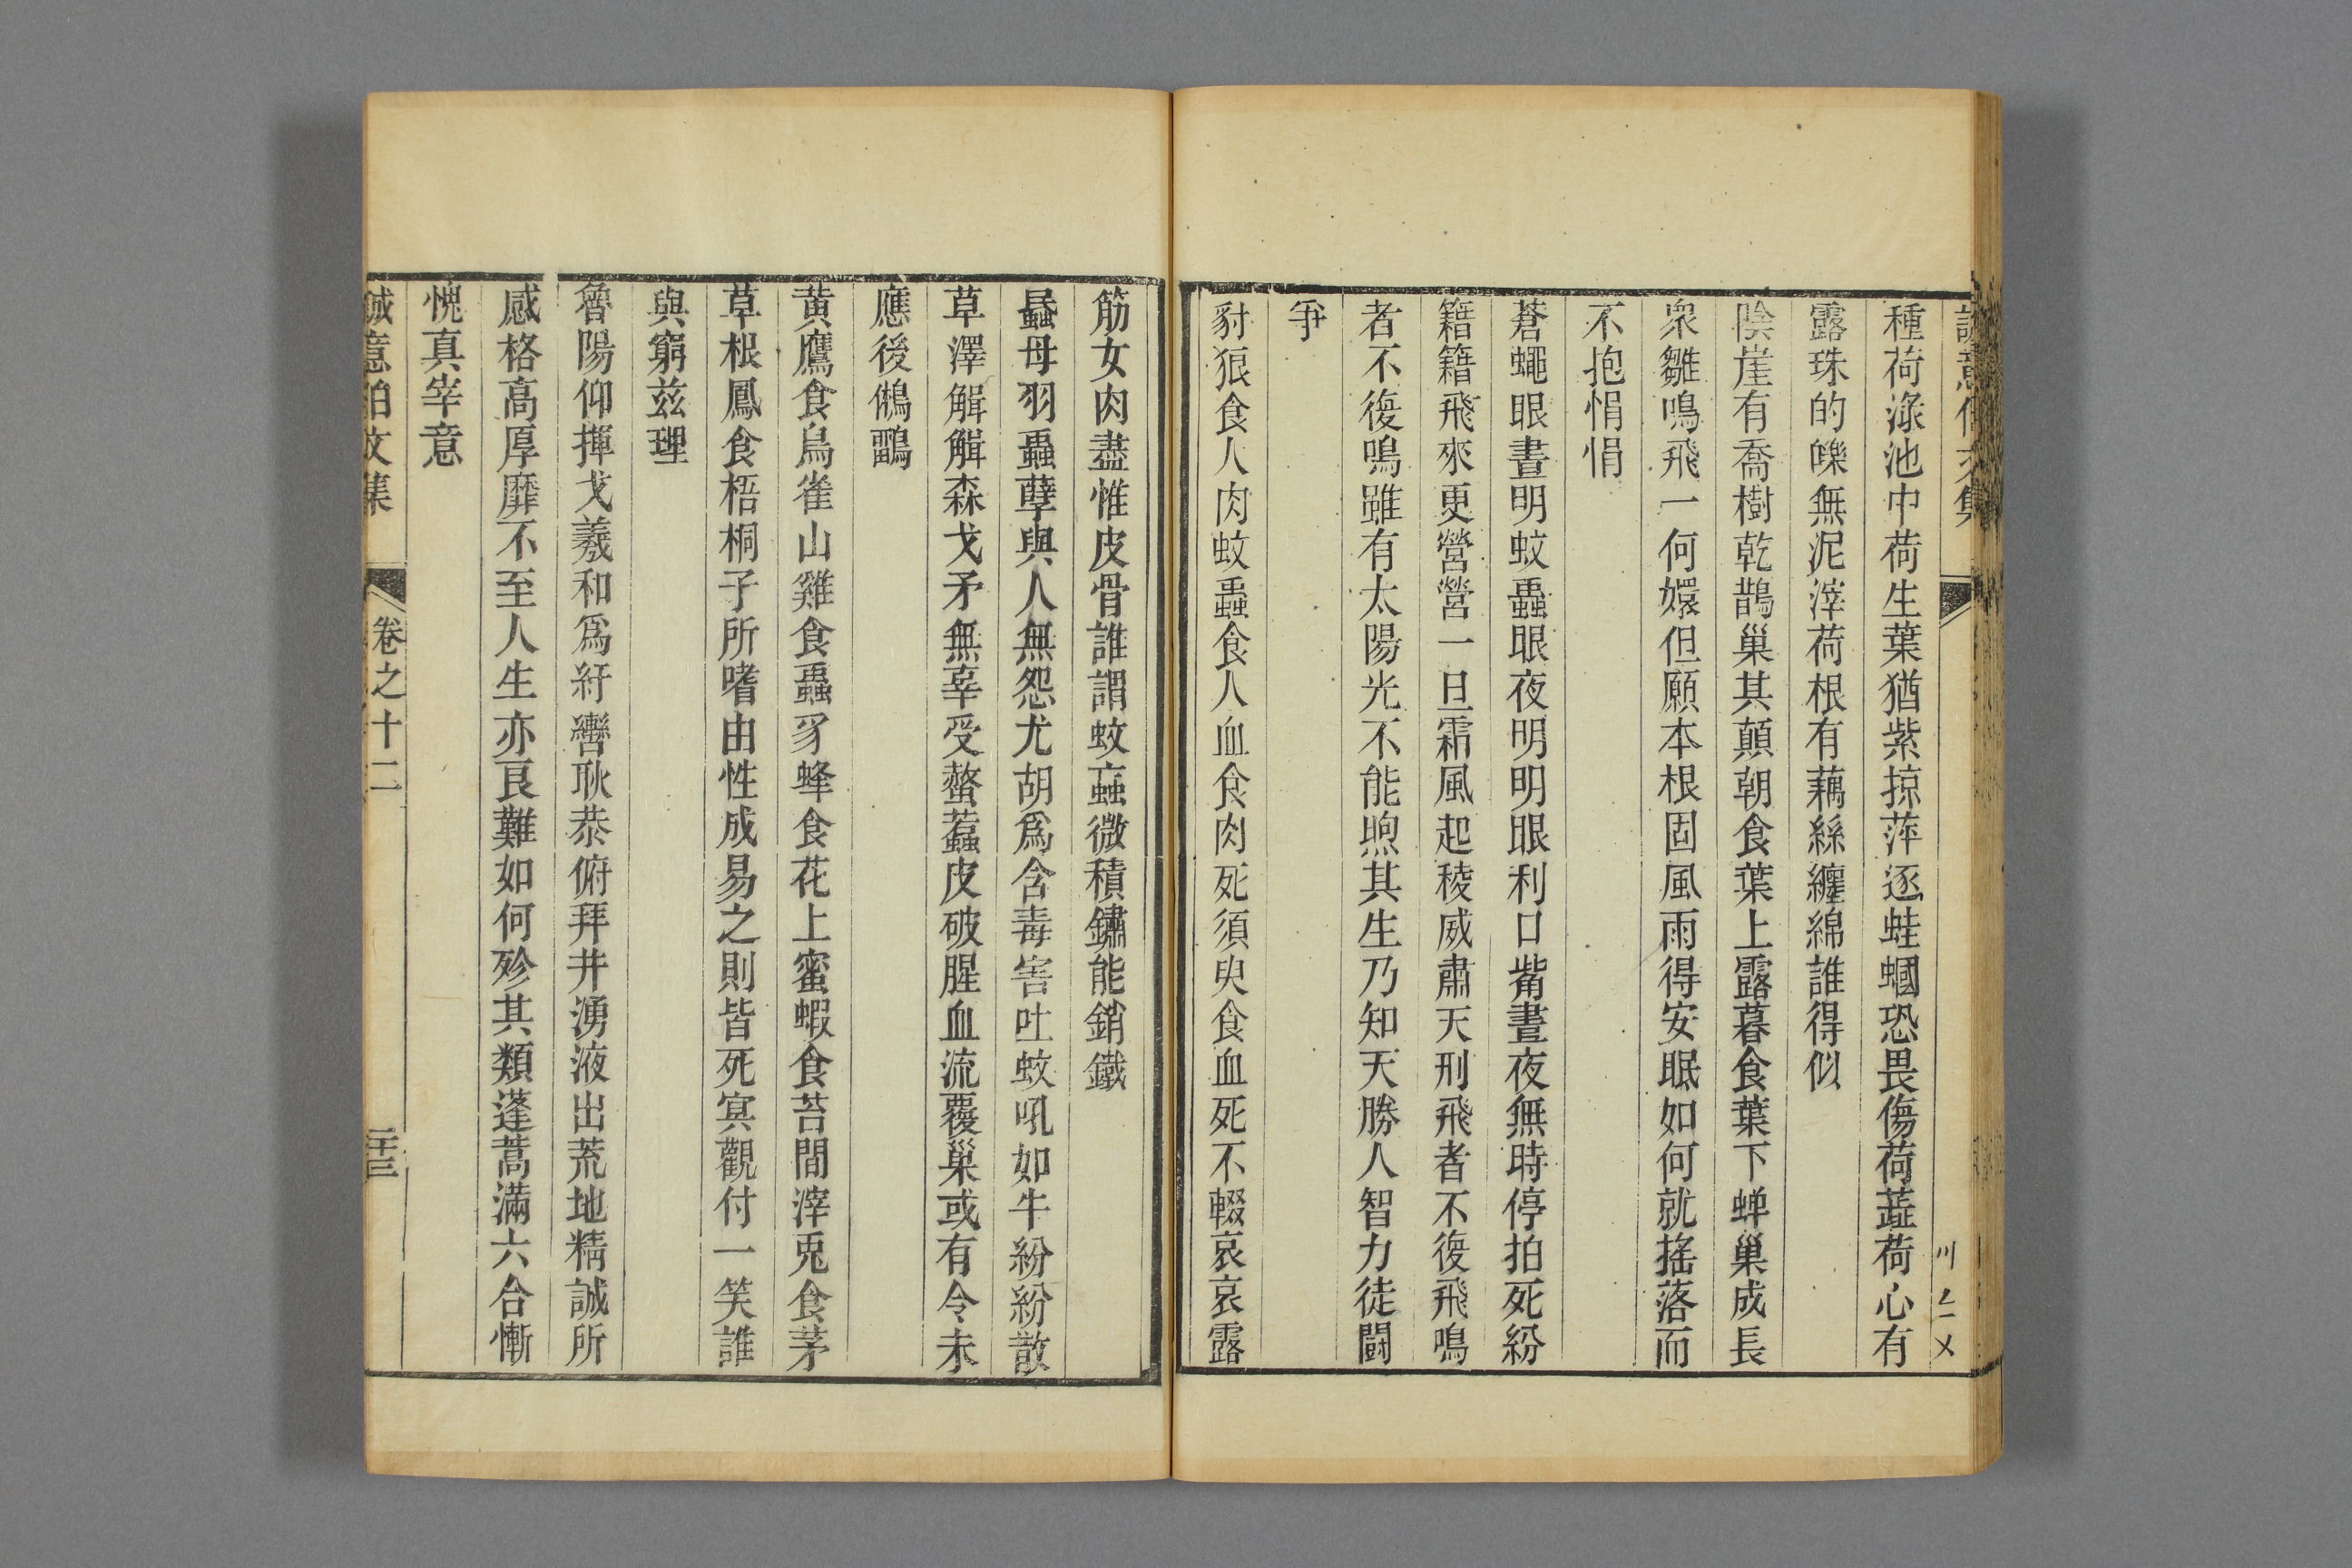 種荷淥池中荷生葉猶紫掠萍逐蛙蟈恐畏傷荷蕋荷心有
露珠的皪無泥滓荷根有藕絲纏綿誰得似
陰崖有喬樹乾鵲巢其顛朝食葉上露暮食葉下蟬巢成長
衆雛鳴飛一何嬛但願本根固風雨得安眠如何就搖落而
不抱悁悁
蒼蠅眼晝明蚊蝱眼夜明明眼利口觜晝夜無時停拍死紛
籍籍飛來更營營一旦霜風起稜威肅天刑飛者不復飛鳴
者不復鳴雖有太陽光不能煦其生乃知天勝人智力徒鬬
爭
豺狼食人肉蚊蝱食人血食肉死須臾食血死不輟哀哀露
筋女肉盡惟皮骨誰謂蚊蝱微積鏽能銷鐵
蟁母羽蟲孽與人無怨尤胡爲含毒害吐蚊吼如牛紛紛散
草澤觧觧森戈矛無辜受螫蠚皮破腥血流覆巢或有令未
應後鵂鶹
黄鷹食鳥雀山雞食蟲豸蜂食花上蜜蝦食苔間滓兎食茅
草根鳳食梧桐子所嗜由性成易之則皆死冥觀付一笑誰
與窮兹理
魯陽仰揮戈羲和爲紆轡耿恭俯拜井湧液出荒地精誠所
感格高厚靡不至人生亦良難如何殄其類蓬蒿滿六合慚
愧真宰意
誠意伯文集 卷之十二 二十三